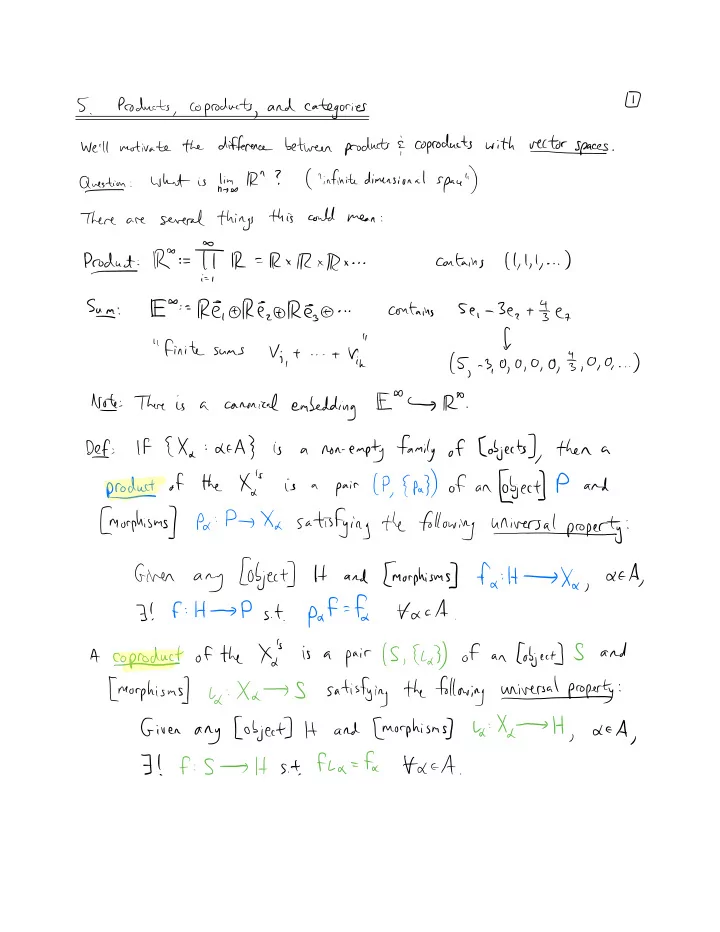 5. Products, coproducts, and categories 1
We'll motivate the difference between products & coproducts with vector spaces.
Question: What is lim n→∞ ℝⁿ ? ("infinite dimensional space")
There are several things this could mean:
Product: ℝ^∞ := ∏_{i=1}^∞ ℝ = ℝ × ℝ × ℝ × ... contains (1,1,1,...)
Sum: 𝔼^∞ := ℝē₁ ⊕ ℝē₂ ⊕ ℝē₃ ⊕ ... contains 5e₁ - 3e₂ + 4/3 e₇
"finite sums v_{i₁} + ... + v_{i_k}" ↕
(5, -3, 0, 0, 0, 0, 4/3, 0, 0, ...)
Note: There is a canonical embedding 𝔼^∞ ↪ ℝ^∞.
Def: If {X_α : α∈A} is a non-empty family of [objects], then a
product of the X_α's is a pair (P, {p_α}) of an [object] P and
[morphisms] p_α: P → X_α satisfying the following universal property:
Given any [object] H and [morphisms] f_α: H → X_α, α∈A,
∃! f: H → P s.t. p_α f = f_α ∀α∈A.
A coproduct of the X_α's is a pair (S, {ι_α}) of an [object] S and
[morphisms] ι_α: X_α → S satisfying the following universal property:
Given any [object] H and [morphisms] ι_α: X_α → H, α∈A,
∃! f: S → H s.t. fι_α = f_α ∀α∈A.